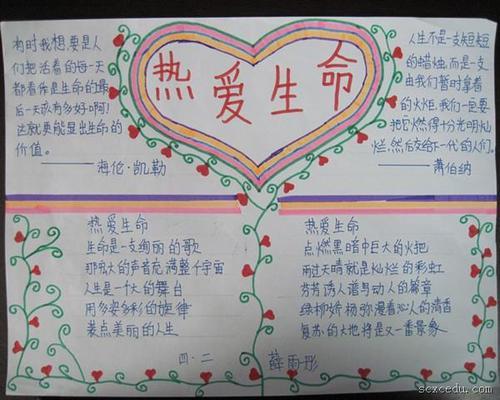 有时我想,要是人
们把活着的每一天
都看作是生命的最
后一天该有多好啊!
这就更能显出生命的
价值。
——海伦·凯勒
热爱生命
人生不是一支短短
的蜡烛,而是一支
由我们暂时拿着
的火炬,我们一定要
把它燃得十分光明灿
烂,然后交给下一代的人们。
——萧伯纳
热爱生命
生命是一支绚丽的歌
那弘大的声音充满整个宇宙
人生是一个大的舞台
用多姿多彩的旋律
装点美丽的人生
热爱生命
点燃黑暗中巨大的火把
雨过天晴就是灿烂的彩虹
芬芳诱人谱写动人的篇章
绿柳娇杨弥漫着沁人的清香
复苏的大地将是又一番景象
四·二
薛雨彤
scxcedu.com